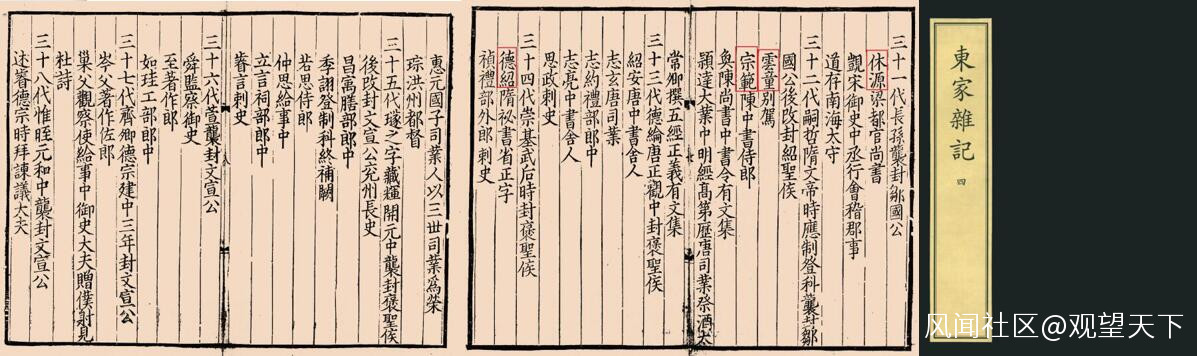 東家雜記
四
三十一代長孫襲封鄒國公
休源梁都官尚書
覬宋御史中丞行會稽郡事
道存南海太守
三十二代嗣哲隋文帝時應制登科襲封鄒
國公後改封紹聖侯
雲童別駕
宗範陳中書侍郎
奐陳尚書中書令有文集
穎達大業中明經高第歷唐司業祭酒太
常卿撰五經正義有文集
三十三代德綸唐正觀中封褒聖侯
紹安唐中書舍人
志玄唐司業
志約禮部郎中
志亮中書舍人
思政刺史
三十四代崇基武后時封褒聖侯
德紹隋祕書省正字
禎禮部外郎刺史
惠元國子司業人以三世司業為榮
琮洪州都督
三十五代璲之字藏輝開元中襲封褒聖侯
後改封文宣公兗州長史
昌寓膳部郎中
季詡登制科終補闕
若思侍郎
仲思給事中
立言祠部郎中
眘言刺史
三十六代萱襲封文宣公
舜監察御史
至著作郎
如珪工部郎中
三十七代齊卿德宗建中三年封文宣公
岑父著作佐郎
巢父觀察使給事中御史大夫贈僕射見
杜詩
三十八代惟晊元和中襲封文宣公
述睿德宗時拜諫議大夫
风闻社区@观望天下